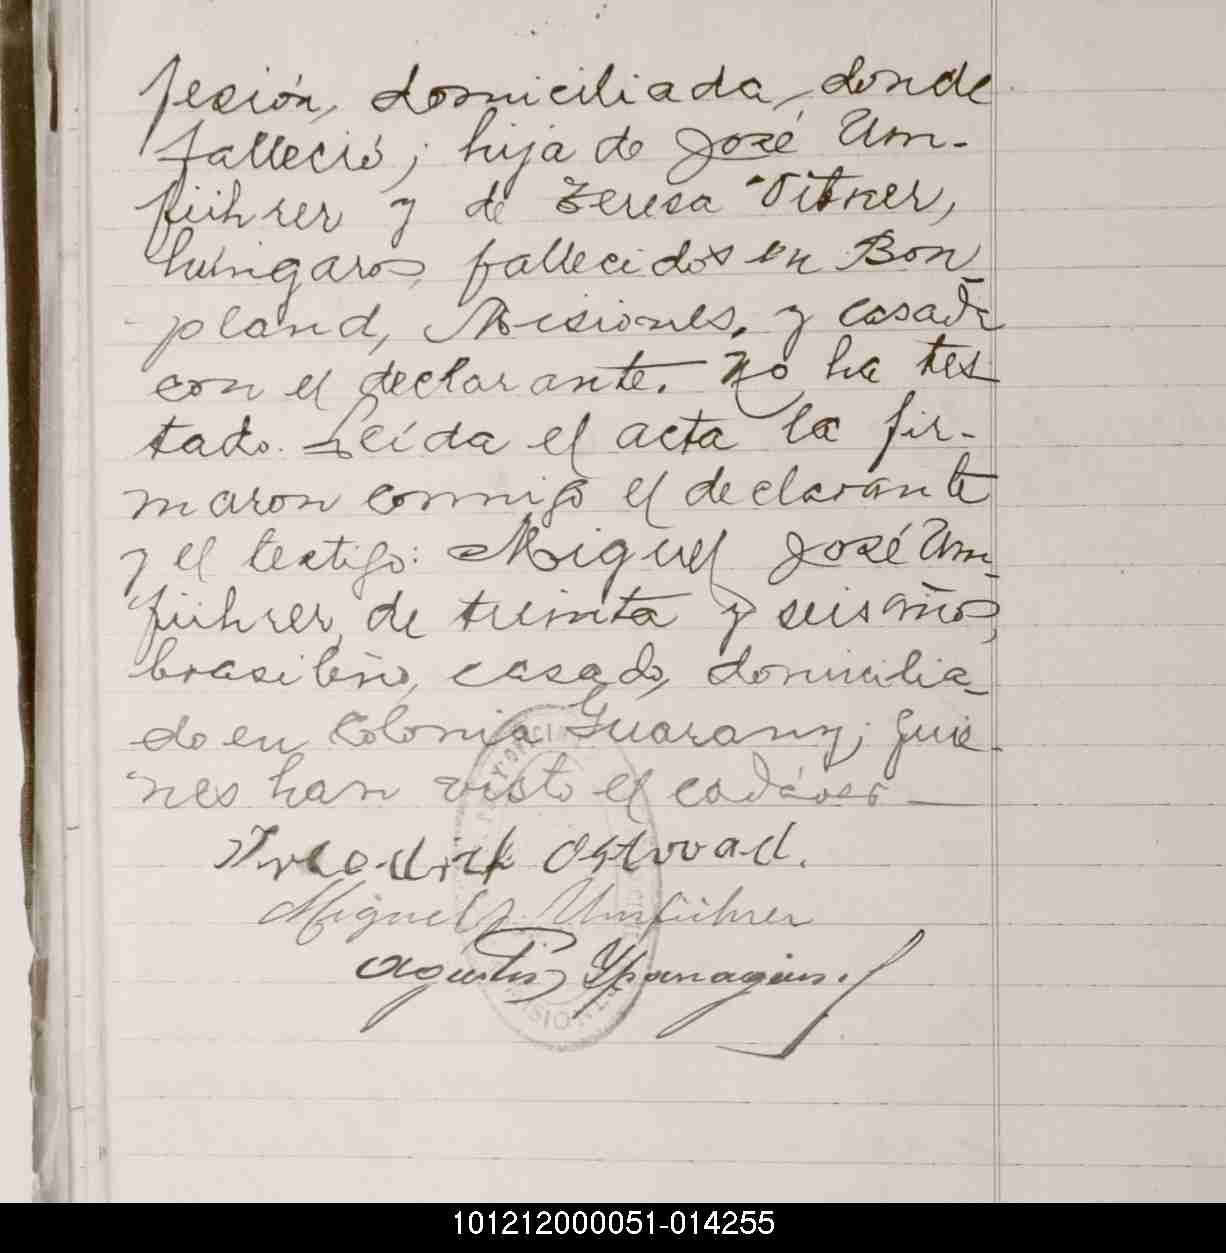 fesión, domiciliada donde
falleció; hija de José Um-
führer y de Teresa Vitner,
húngaros, fallecidos en Bon-
pland, Misiones, y casada
con el declarante. No ha tes-
tado. Leída el acta la fir-
maron conmigo el declarante
y el testigo: Miguel José Um-
führer, de treinta y seis años,
brasileño, casado, domicilia-
do en Colonia Guarany; quie-
nes han visto el cadáver
Miguel J. Umführer
Agustín
101212000051-014255